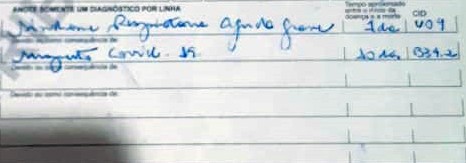 ANOTE SOMENTE UM DIAGNÓSTICO POR LINHA
Tempo aproximado entre o início da doença e a morte
CID
Síndrome Respiratória Aguda Grave 1 dia U04
Devido ou como consequência de:
Suspeito Covid-19 10 dias B34.2
Devido ou como consequência de:
Devido ou como consequência de: